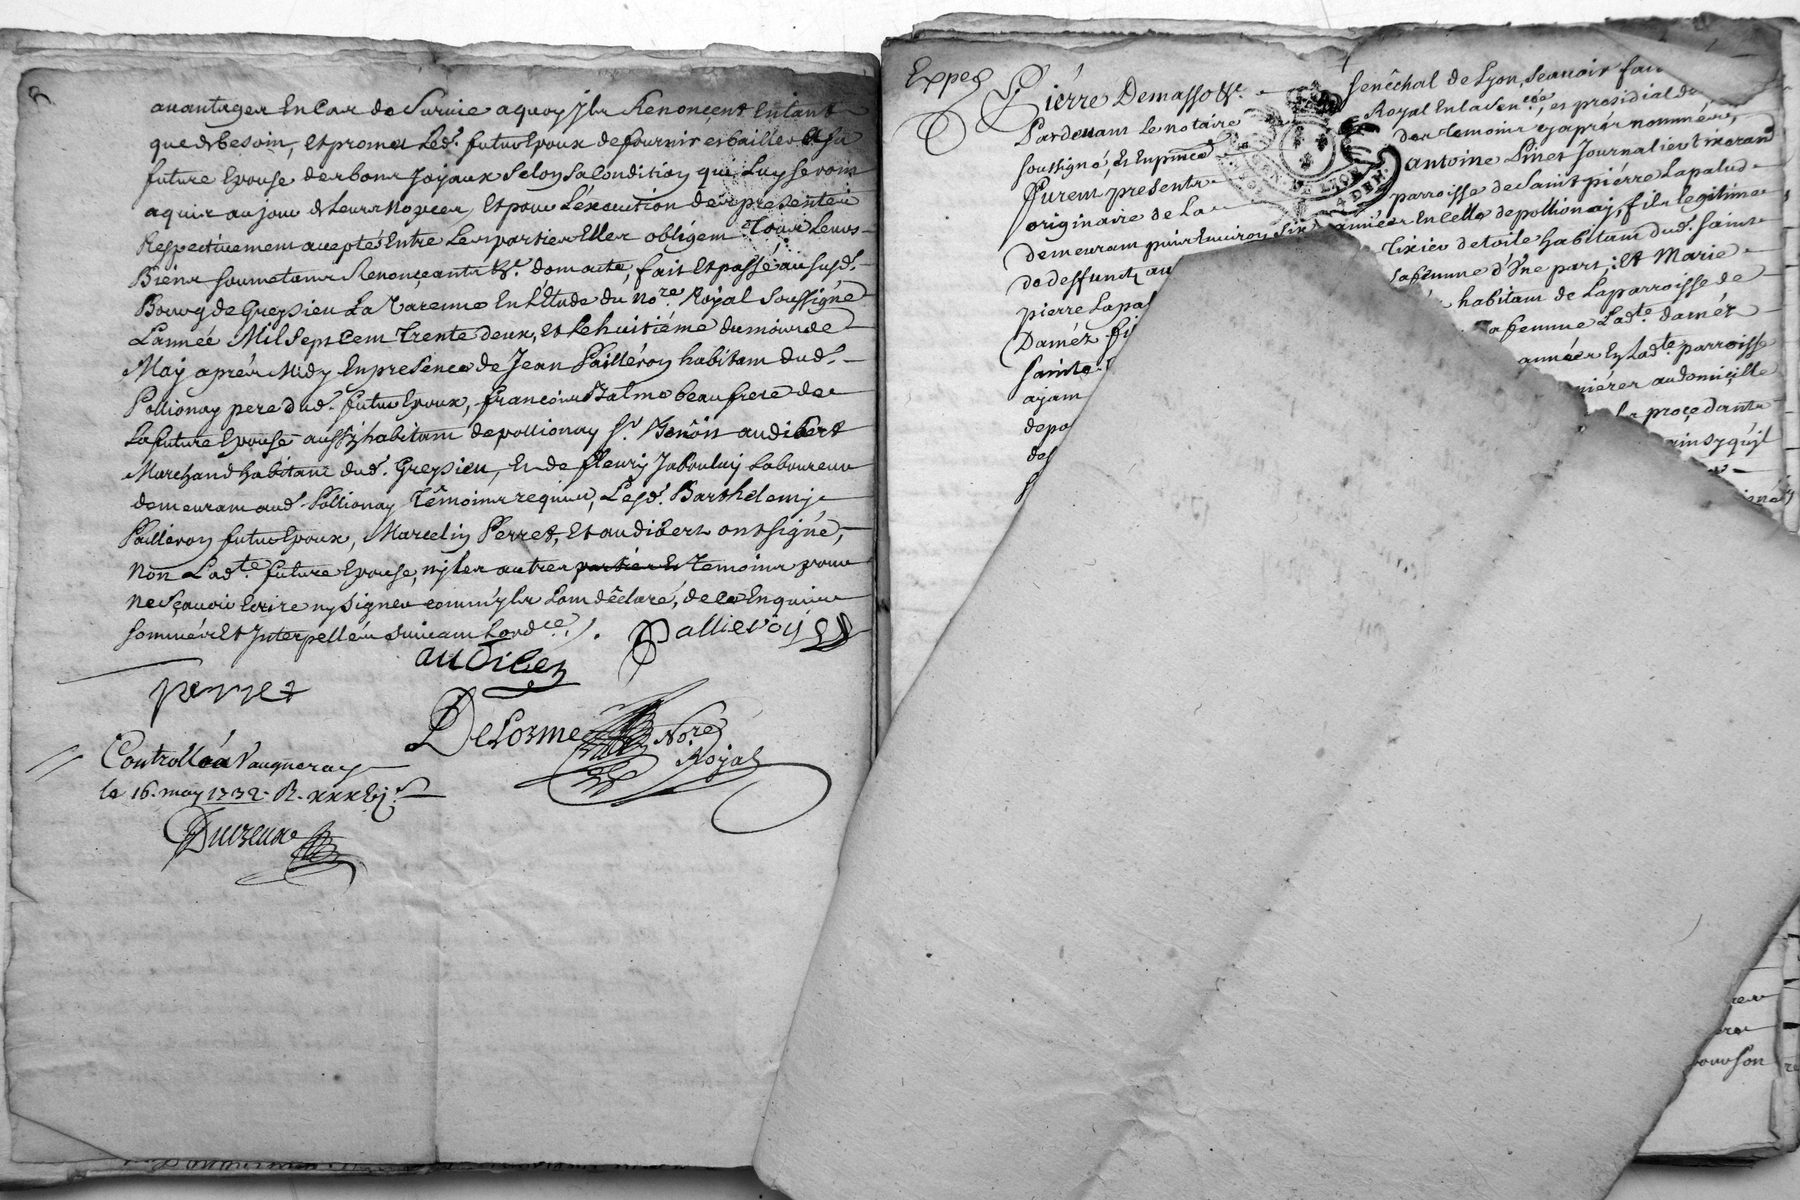 avantages En Cas de Survie a quoy Ils Renoncent En tant
que de besoin, Et promet Led. futur Epoux de fournir et bailler a Sa
future Epouse des bons Joyaux Selon Sa Condition qui Luy seront
aquis au jour de Leurs Nopces, Et pour L'éxecution des presentes
Respectivement acceptés Entre Les parties Elles obligent Tous Leurs
Biens soumetans Renonçeants &c. dont acte, fait Et passé au susd.
Bourg de Greysieu La Varenne En L'Etude du Nore. Royal Soussigné
L'année Mil Sept Cent Trente deux, Et Le huitiéme du mois de
May aprés Midy En presence de Jean Pailléron habitant dud.
Pollionay pere dud. futur Epoux, françois Balme beaufrere de
La future Epouse aussy habitant de pollionay Sr. Benôit audibert
Marchand habitant dud. Greysieu, Et de fleury Jaboulay Laboureur
demeurant aud. Pollionay Témoins requis, Lesd. Barthelemy
Pailléron futur Epoux, Marcelin Perret, Et audibert ont signé,
Non Ladte. future Epouse, ny les autres parties Et Temoins pour
ne sçavoir Ecrire ny signer comm'yls L'ont déclaré, de ce Enquis
sommés Et Interpellés suivant L'ordce.
Pallierón
audibert
perret
Delorme Nore.
Royal
Controllé a Vaugneray
le 16. may 1732. R.
Ducreux
Exped
Pierre Demasso &c. Sénêchal de Lyon, Sçavoir fai
Pardevant Le notaire Royal En la Sencée, et presidial de
soussigné, Et En pnce des temoins cy aprés nommés,
furent presents antoine Pinet Journalier tixeran
originaire de La parroisse de Saint pierre Lapalud
demeurant puis Environ Six années En Celle de pollionay, fils legitime
de deffunct au Tixier de toile habitant dud. Saint
pierre Lapal sa femme d'Une part; Et Marie
Daméz fi habitant de La parroisse de
Sainte sa femme Ladte. daméz
ayant années En Ladte. parroisse
depo au domicille
def La proçedante
insy qu'il
pour son